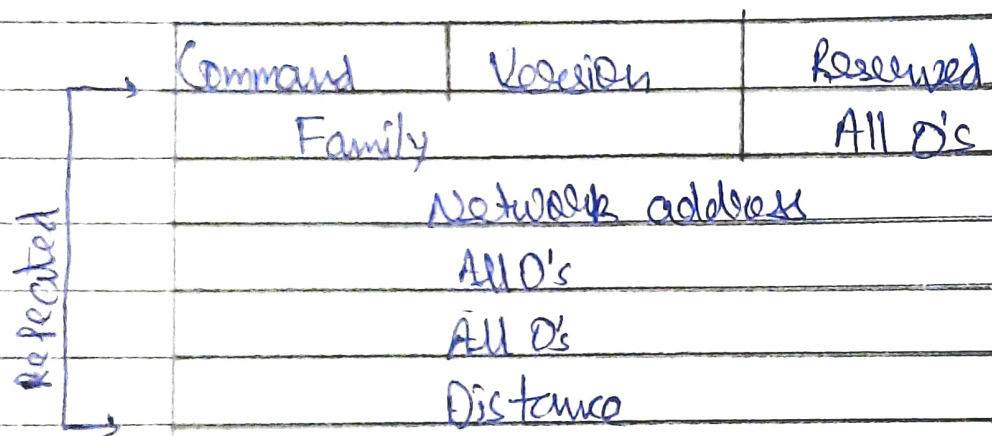 Command Version Reserved
Family All 0's
Network address
All 0's
All 0's
Distance
Repeated